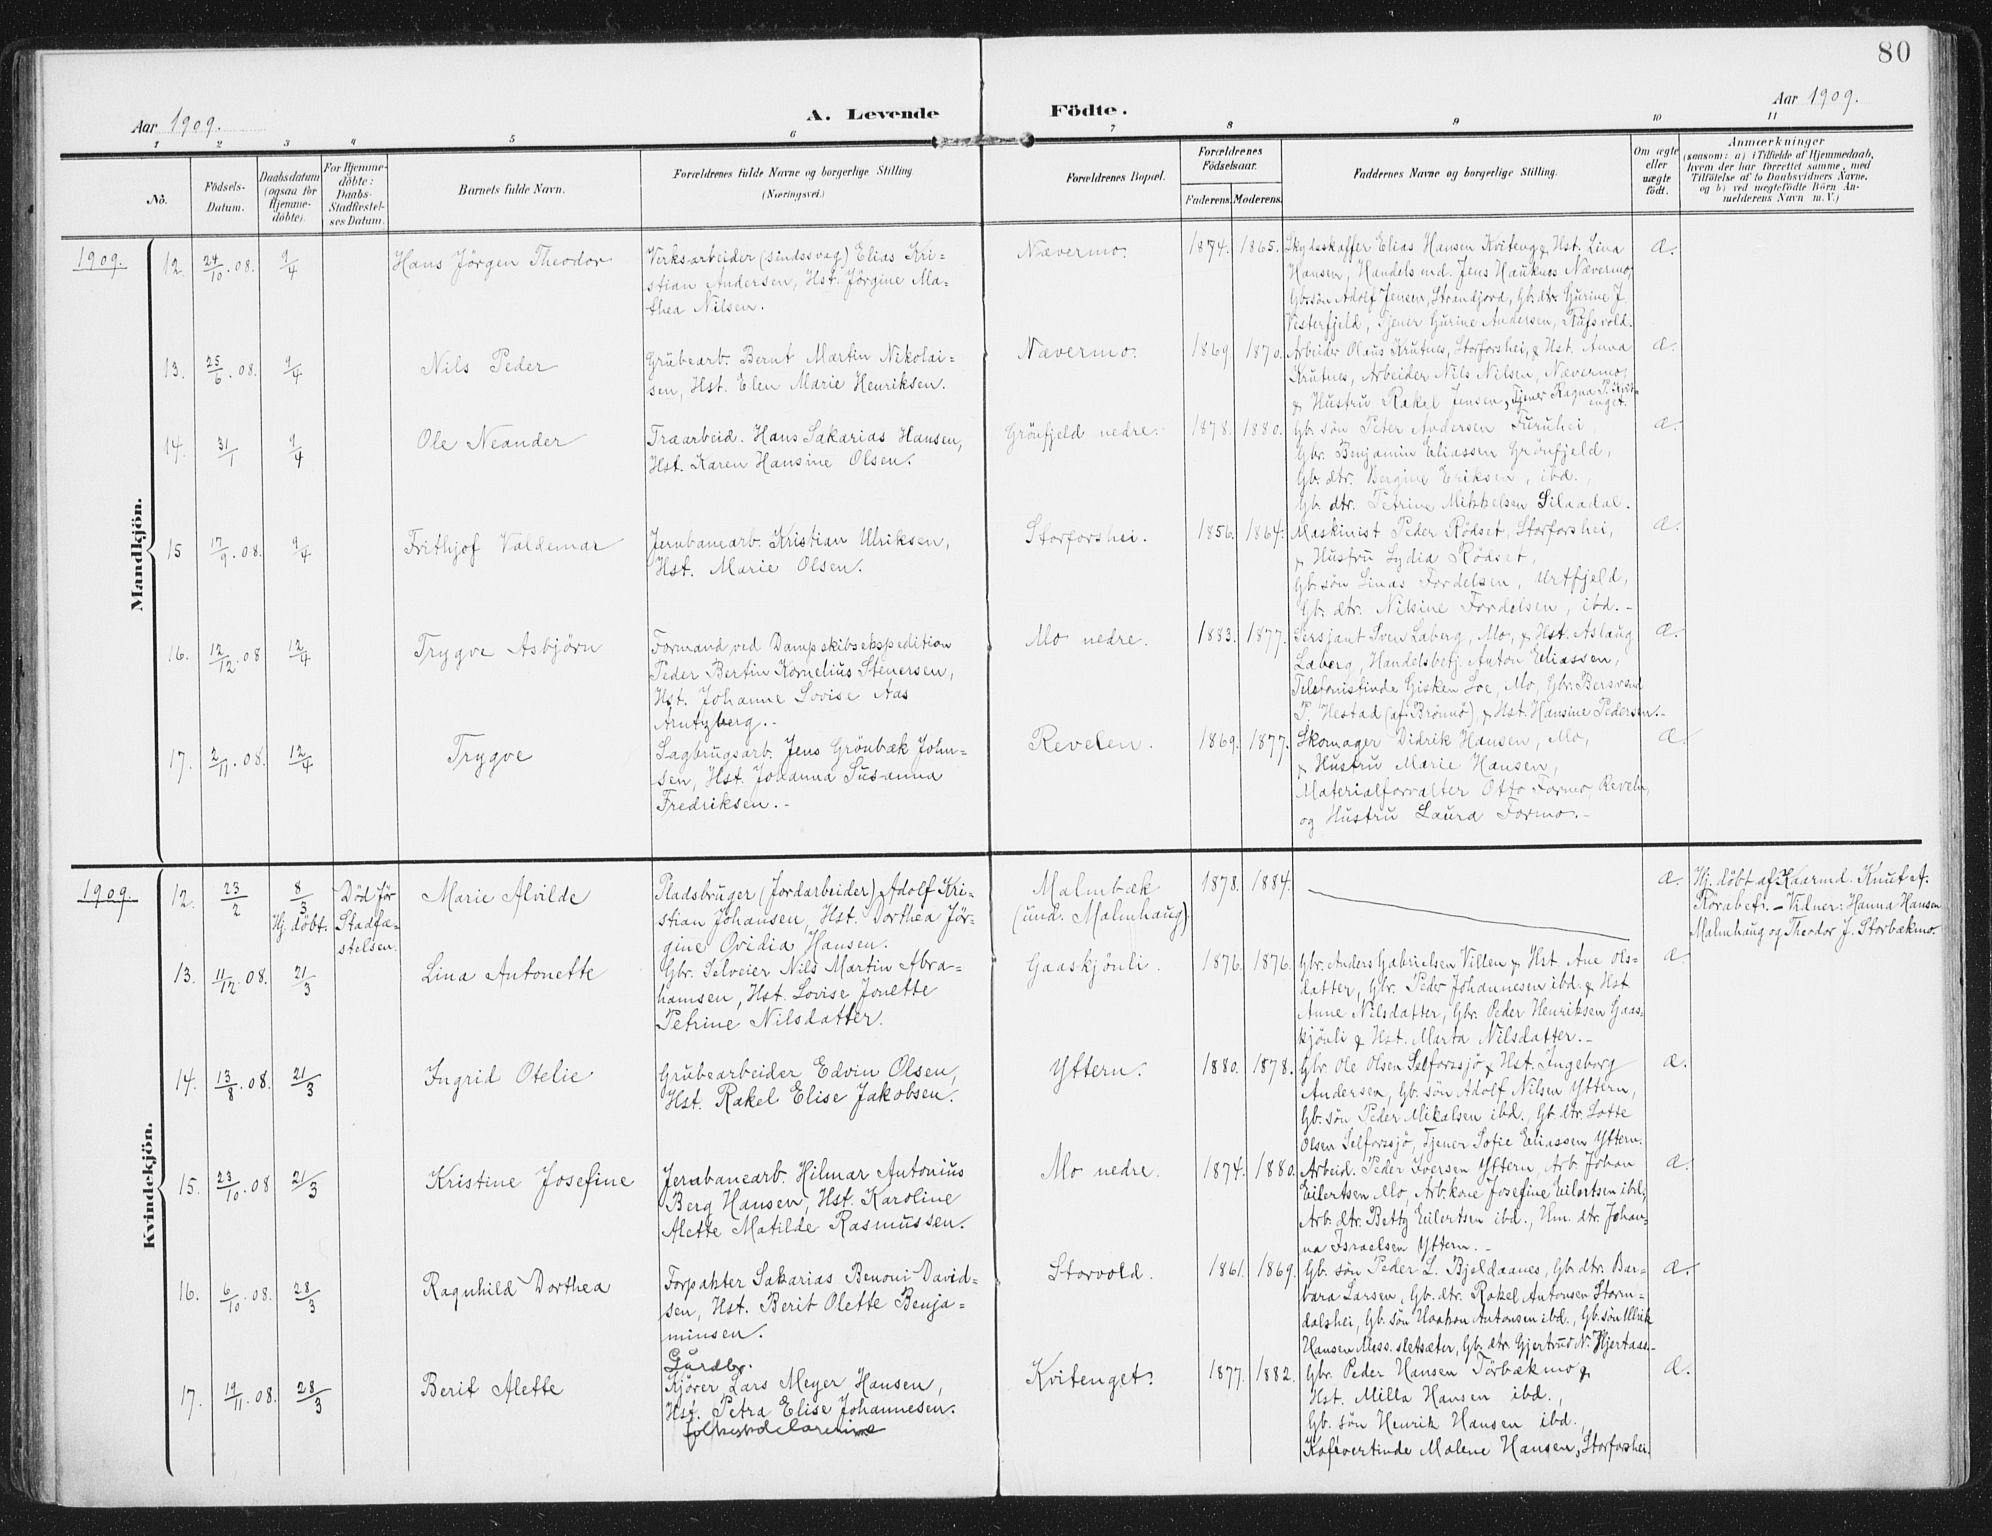 80
Aar 1909.
A. Levende Födte.
Aar 1909.
1 2 3 4 5 6 7 8 9 10 11
No.
Födsels-Datum.
Daabsdatum (ogsaa for Hjemme-döbte).
For Hjemme-döbte: Daabs-Stadfæstel-ses Datum.
Barnets fulde Navn.
Forældrenes fulde Navne og borgerlige Stilling
(Næringsvei.)
Forældrenes Bopæl.
Forældrenes Födselsaar.
Faderens. Moderens.
Faddernes Navne og borgerlige Stilling.
Om ægte eller uægte födt.
Anmærkninger
(saasom: a) i Tilfælde af Hjemmedaab,
hvem der har forrettet samme, med
Tilföielse af to Daabsvidners Navne,
og b) ved uægtefödte Börn An-
melderens Navn m. V.)
Mandkjön.
1909. 12. 24/10.08. 9/4 Hans Jörgen Theodor
Verksarbeider (sindssvag) Elias Kri-
stian Andersen, Hst. Jörgine Ma-
thea Nilsen.
Nævermo. 1874. 1865.
Skydsskaffer Elias Hansen Kviteng & Hst. Lina
Hansen, Handelsmd. Jens Hauknes Nævermo,
Gb.sön Adolf Jensen, Strandjord, Gb. dtr. Gurine J.
Vesterfjeld, Tjener Gurine Andersen, Rufsvold.
Æ.
13. 25/6.08. 9/4 Nils Peder
Grubearb. Bernt Martin Nikolai-
sen, Hst. Elen Marie Henriksen.
Nævermo. 1869. 1870.
Arbeider Olaus Krutnes, Storforshei, & Hst. Anna
Krutnes, Arbeider Nils Nilsen, Nævermo,
& Hustru Rakel Jensen, Tjener Ragna P. Kvit-
enget.
Æ.
14. 31/1 9/4 Ole Neander
Traarbeid. Hans Sakarias Hansen,
Hst. Karen Hansine Olsen.
Grönfjeld nedre. 1878. 1880.
Gb. sön Peter Andersen Furuhei,
Gbr. Benjamin Eliassen Grönfjeld,
Gb. dtr. Bergine Eriksen, ibd.,
Gb. dtr. Petrine Mikkelsen Silaadal.
Æ.
15 17/9.08. 9/4 Frithjof Valdemar
Jernbanearb. Kristian Ulriksen,
Hst. Marie Olsen.
Storforshei. 1856. 1864.
Maskinist Peder Rödset, Storforshei,
& Hustru Lydia Rödset,
Gb. sön Linas Fordelsen, Urtfjeld,
Gb. dtr. Nilsine Fordelsen, ibd.-
Æ.
16. 12/12.08 12/4 Trygve Asbjörn
Formand ved Dampskibsekspedition
Peder Bertin Kornelius Stenersen,
Hst. Johanne Lovise Aas
Arntzberg.-
Mo nedre. 1883. 1877.
Sersjant Sven Laberg, Mo, & Hst. Aslaug
Laberg, Handelsbetj. Anton Eliassen,
Telefonistinde Gisken Loe, Mo, Gbr. Bersvend
P. Hestad (af Brönnö), & Hst. Hansine Pedersen.-
Æ.
17. 2/11.08. 12/4 Trygve
Sagbrugsarb. Jens Grönbæk John-
sen, Hst. Johanna Susanna
Fredriksen.-
Revelen. 1869. 1877.
Skomager Didrik Hansen, Mo,
& Hustru Marie Hansen,
Materialforvalter Otto Formo, Revelen,
og Hustru Laura Formo.-
Æ.
Kvindekjön.
1909. 12. 23/2 8/3 Hj. döbt. Död för Stadfæ-stelsen. Marie Alvilde
Pladsbruger (Jordarbeider) Adolf Kri-
stian Johansen, Hst. Dorthea Jör-
gine Ovidia Hansen.
Malmbæk
(und. Malmhaug)
1878. 1884.
Æ.
Hj. döbt af Kaarmd. Knut A.
Storabefr. - Vidner: Hanna Hansen
Malmhaug og Theodor J. Storbækmo.
13. 11/12.08. 21/3 Lina Antonette
Gbr. Selveier Nils Martin Abra-
hamsen, Hst. Lovise Jonette
Petrine Nilsdatter.
Gaaskjönli. 1876. 1876.
Gbr. Anders Gabrielsen Villen & Hst. Ane Ols-
datter, Gbr. Peder Johannesen ibd. & Hst
Anne Nilsdatter, Gbr. Peder Henriksen Gaas-
kjönli & Hst. Marta Nilsdatter.-
Æ.
14. 13/8.08. 21/3 Ingrid Otelie
Grubearbeider Edvin Olsen,
Hst. Rakel Elise Jakobsen.
Yttern. 1880. 1878.
Gbr. Ole Olsen Selforssjö & Hst. Ingeborg
Andersen, Gb. sön Adolf Nilsen Yttern,
Gb. sön Peder Mikalsen ibd., Gb. dtr. Lotte
Olsen Selforssjö, Tjener Sofie Eliassen Yttern.
Æ.
15. 23/10.08 21/3 Kristine Josefine
Jernbanearb. Hilmar Antonius
Berg Hansen, Hst. Karoline
Alette Matilde Rasmussen.
Mo nedre. 1874. 1880.
Arbeid. Peder Iversen Yttern, Arb. Johan
Eilertsen Mo, Arb. kone Josefine Eilertsen ibd.,
Arb. dtr. Betty Eilertsen ibd., Hm. dtr. Johan-
na Israelsen Yttern.-
Æ.
16. 6/10.08. 28/3 Ragnhild Dorthea
Forpakter Sakarias Benoni David-
sen, Hst. Berit Olette Benja-
minsen.
Storvold. 1861. 1869.
Gb. sön Peder L. Bjeldaanes, Gb. dtr. Bar-
bara Larsen, Gb. dtr. Rakel Antonsen Storm-
dalshei, Gb. sön Haakon Antonsen ibd., Gb. sön Ulrik
Hansen Mess. sletsæter, Gb. dtr. Gjertrud N. Hjertaas.-
Æ.
17. 19/11.08. 28/3 Berit Alette
Gaardbr.
Kjörer Lars Meyer Hansen,
Hst. Petra Elise Johannesen.
Kvitenget. 1877. 1882.
Gbr. Peder Hansen Törbækmo &
Hst. Milla Hansen ibd.,
Gb. sön Henrik Hansen ibd.,
Kafevertinde Malene Hansen, Storforshei.
Æ.